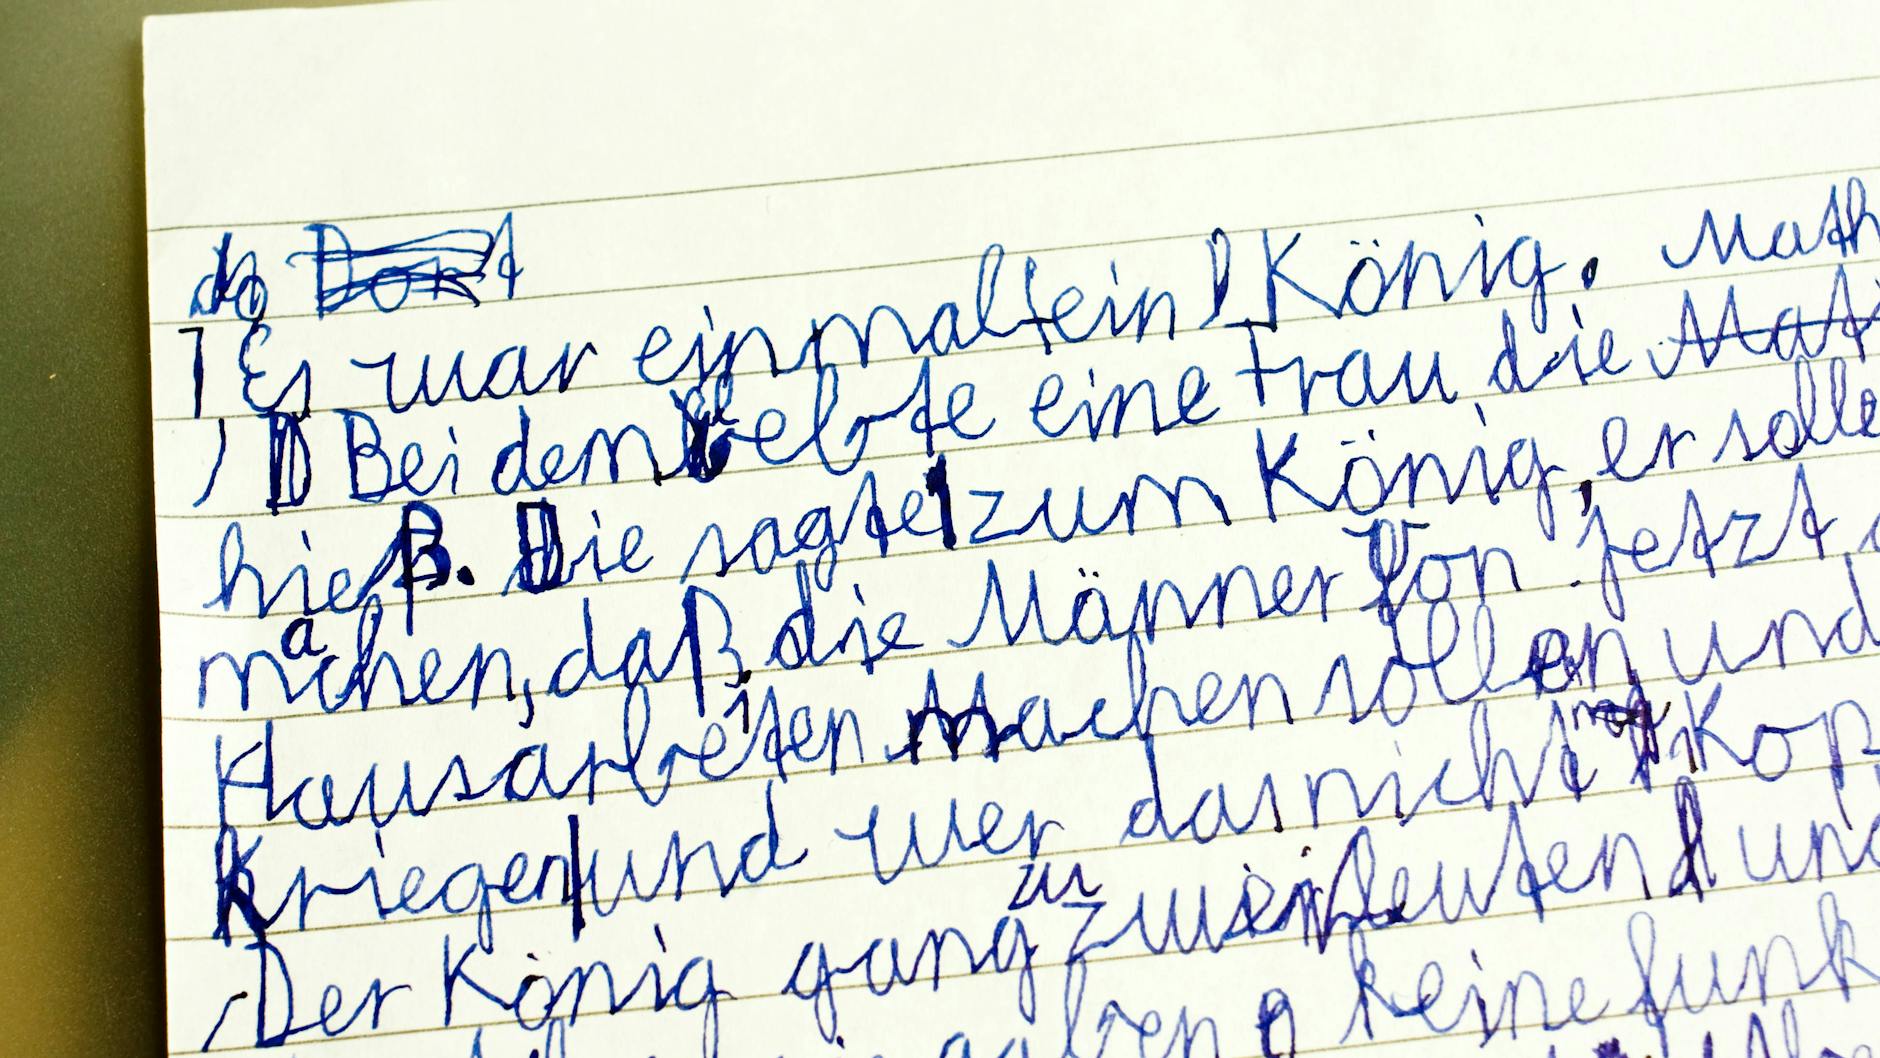 do Dort
Es war einmal ein König. Math
Bei dem lebte eine Frau die Mat
hieß. Die sagte zum König, er solle
machen, daß die Männer Von jetzt
Hausarbeiten Machen sollen und
Kriegen und wer das nicht Kop
Der König gang zu zwei Leuten und
keine funk